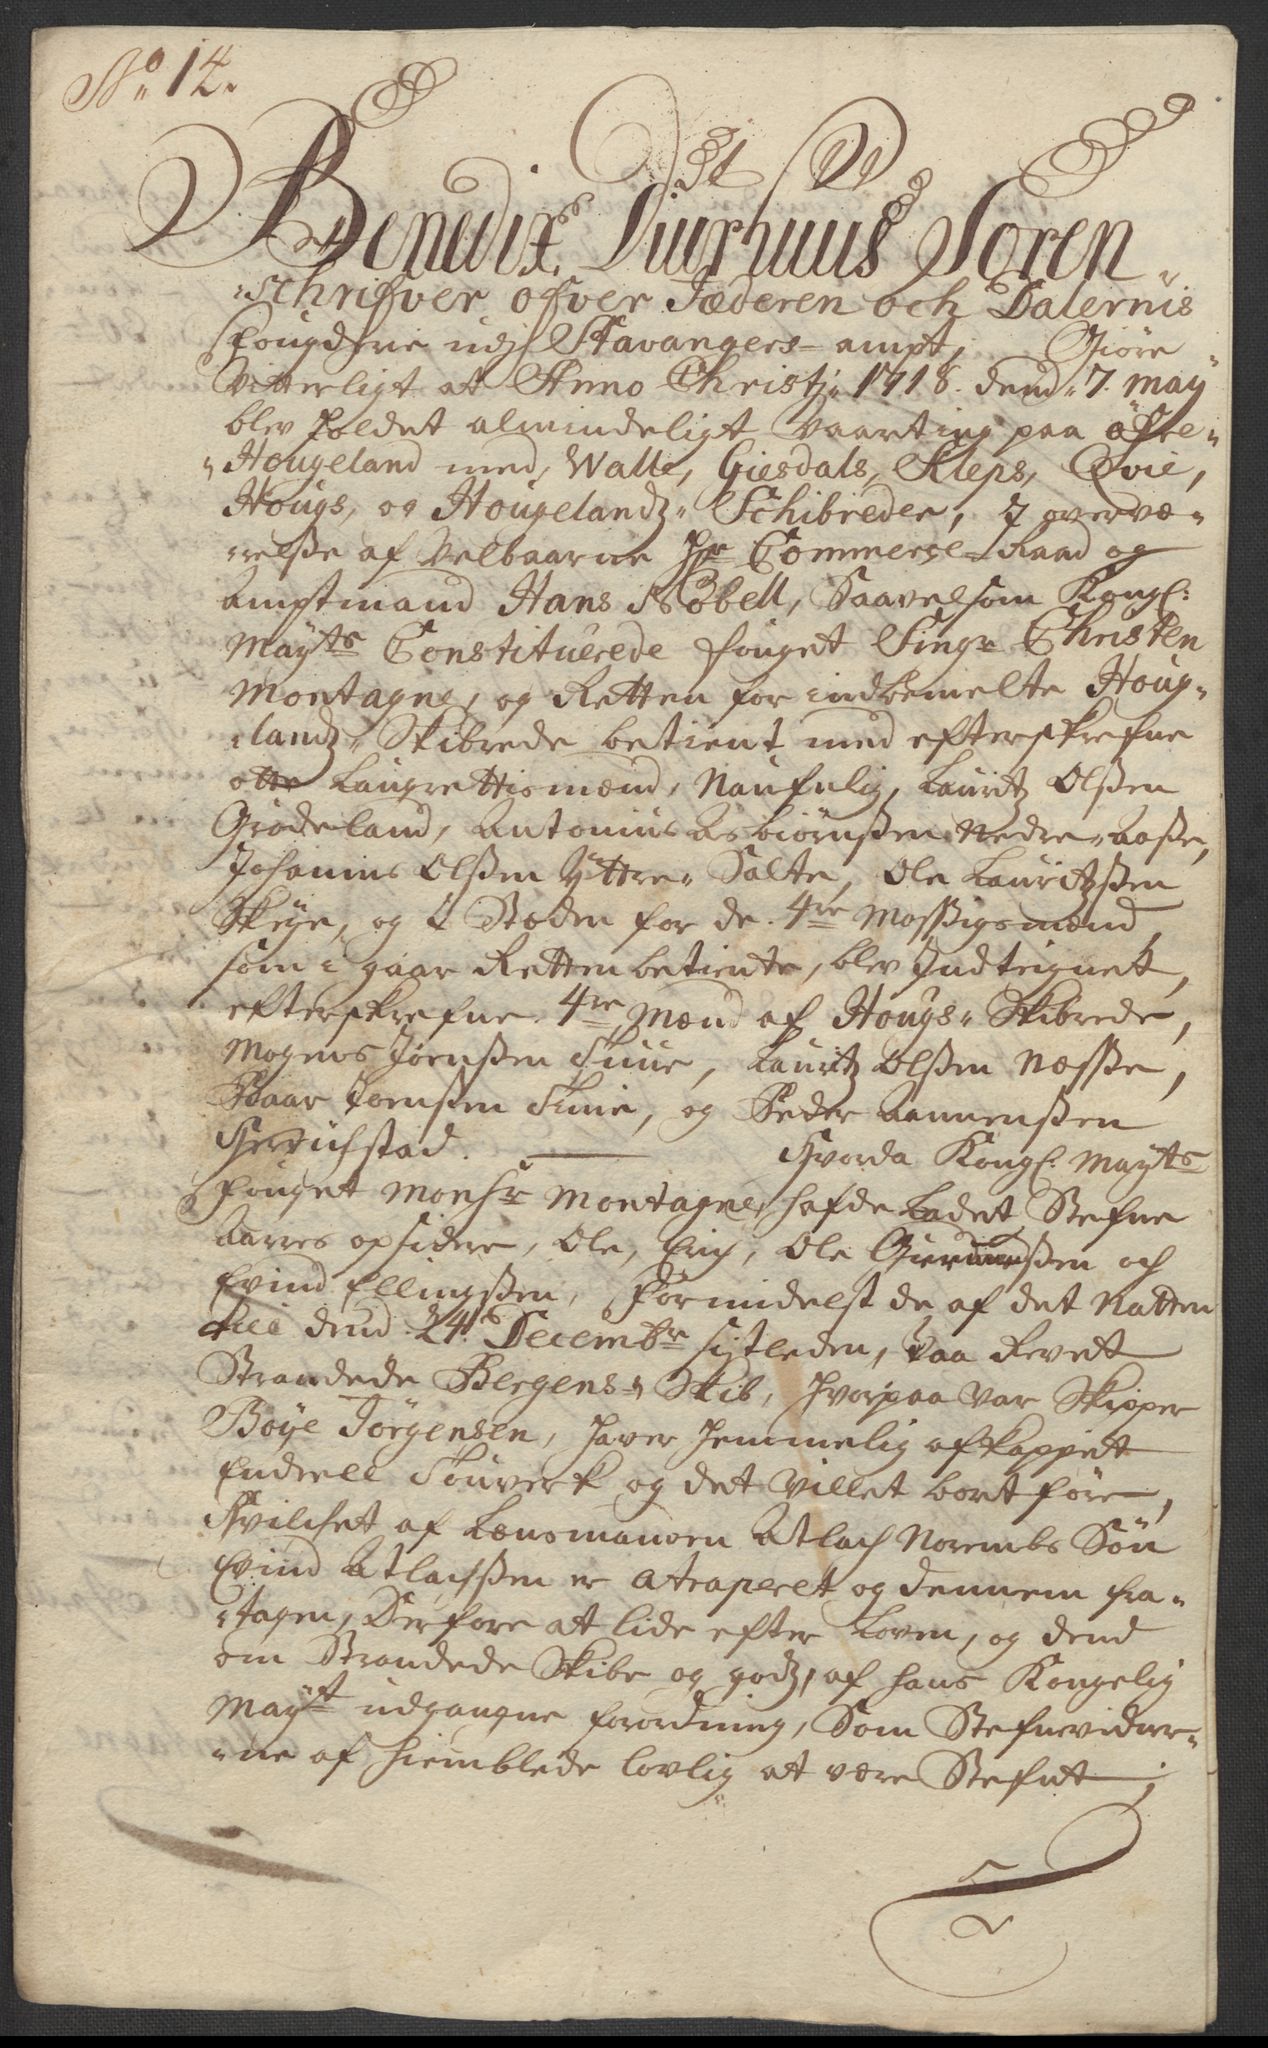 No: 14.
Benedix Diurhuus Soren
=schrifver ofver Jæderen och Dalernis
Fougderie udj Stavangers-ampt, Giøre
Vitterligt at Anno Christj 1718. dend 7. may
blev holdet almindeligt Vaarting paa øfre=
=Hougeland med, Walle, Giesdals, Kleps, Qvie,
Hougs, og Hougelandz Schibreder, J overvæ=
=relse af Velbaarne Hr Commerse-Raad og
Amptmand Hans Nobell, Saavelsom Kongl:
Mayts Constituerede fouget Singr Christen
Montagne, og Retten for indbemelte Houg=
=landz Skibrede betient med efterskrefne
otte Laugrettismænd, Naufnlig, Lauritz Olssen
Grødeland, Antonius Asbiørnssen Nedre-aasse,
Johannis Olssen Yttre-Salte, Ole Lauritzssen
Skeye, og i Stæden for de 4re Mossigsmænd
som i gaar Retten betiente, blev Jndteignet,
efterskrefne 4re Mænd af Hougs Skibrede,
Mogens Jørenssen Tuue, Lauritz Olssen Næsse,
Baar Joenssen Tuue, og Peder Aanenssen
Herrichstad. Hvorda Kongl. Mayts
fouget Monsr Montagne hafde Ladet Stefne
Aarres opsidere, Ole, Erich, Ole Gunderssen och
Evind Ellingssen, Formidelst de af det Natten
till dend 24 Decembr sistleden, Paa Revet
Strandede Bergens Skib, hvorpaa var Skipper
Boye Jørgensen, haver hemmelig afkappet
Endeell Touverk og det villet bortføre,
Hvilchet af Lensmanden Atlach Norembs Søn
Evind Atlachssen er atraperet og dennem fra=
=tagen, Derfore at lide efter Loven, og dend
om Strandede Skibe og godz, af hans Kongelig
Mayst udgangne forordning, Som Stefnevidner=
=ne af hiemblede lovlig at være Stefnt;